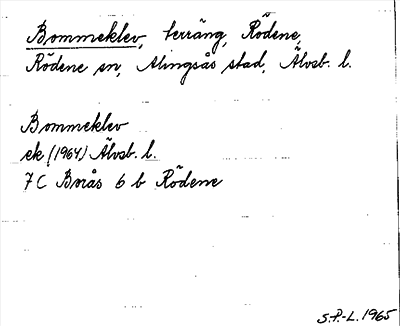 Bommeklev, terräng, Rödene,
Rödene sn, Alingsås stad, Älvsb. l.
Bommeklev
ek (1964) Älvsb. l.
7 C Borås 6 b Rödene
S.P.-L. 1965